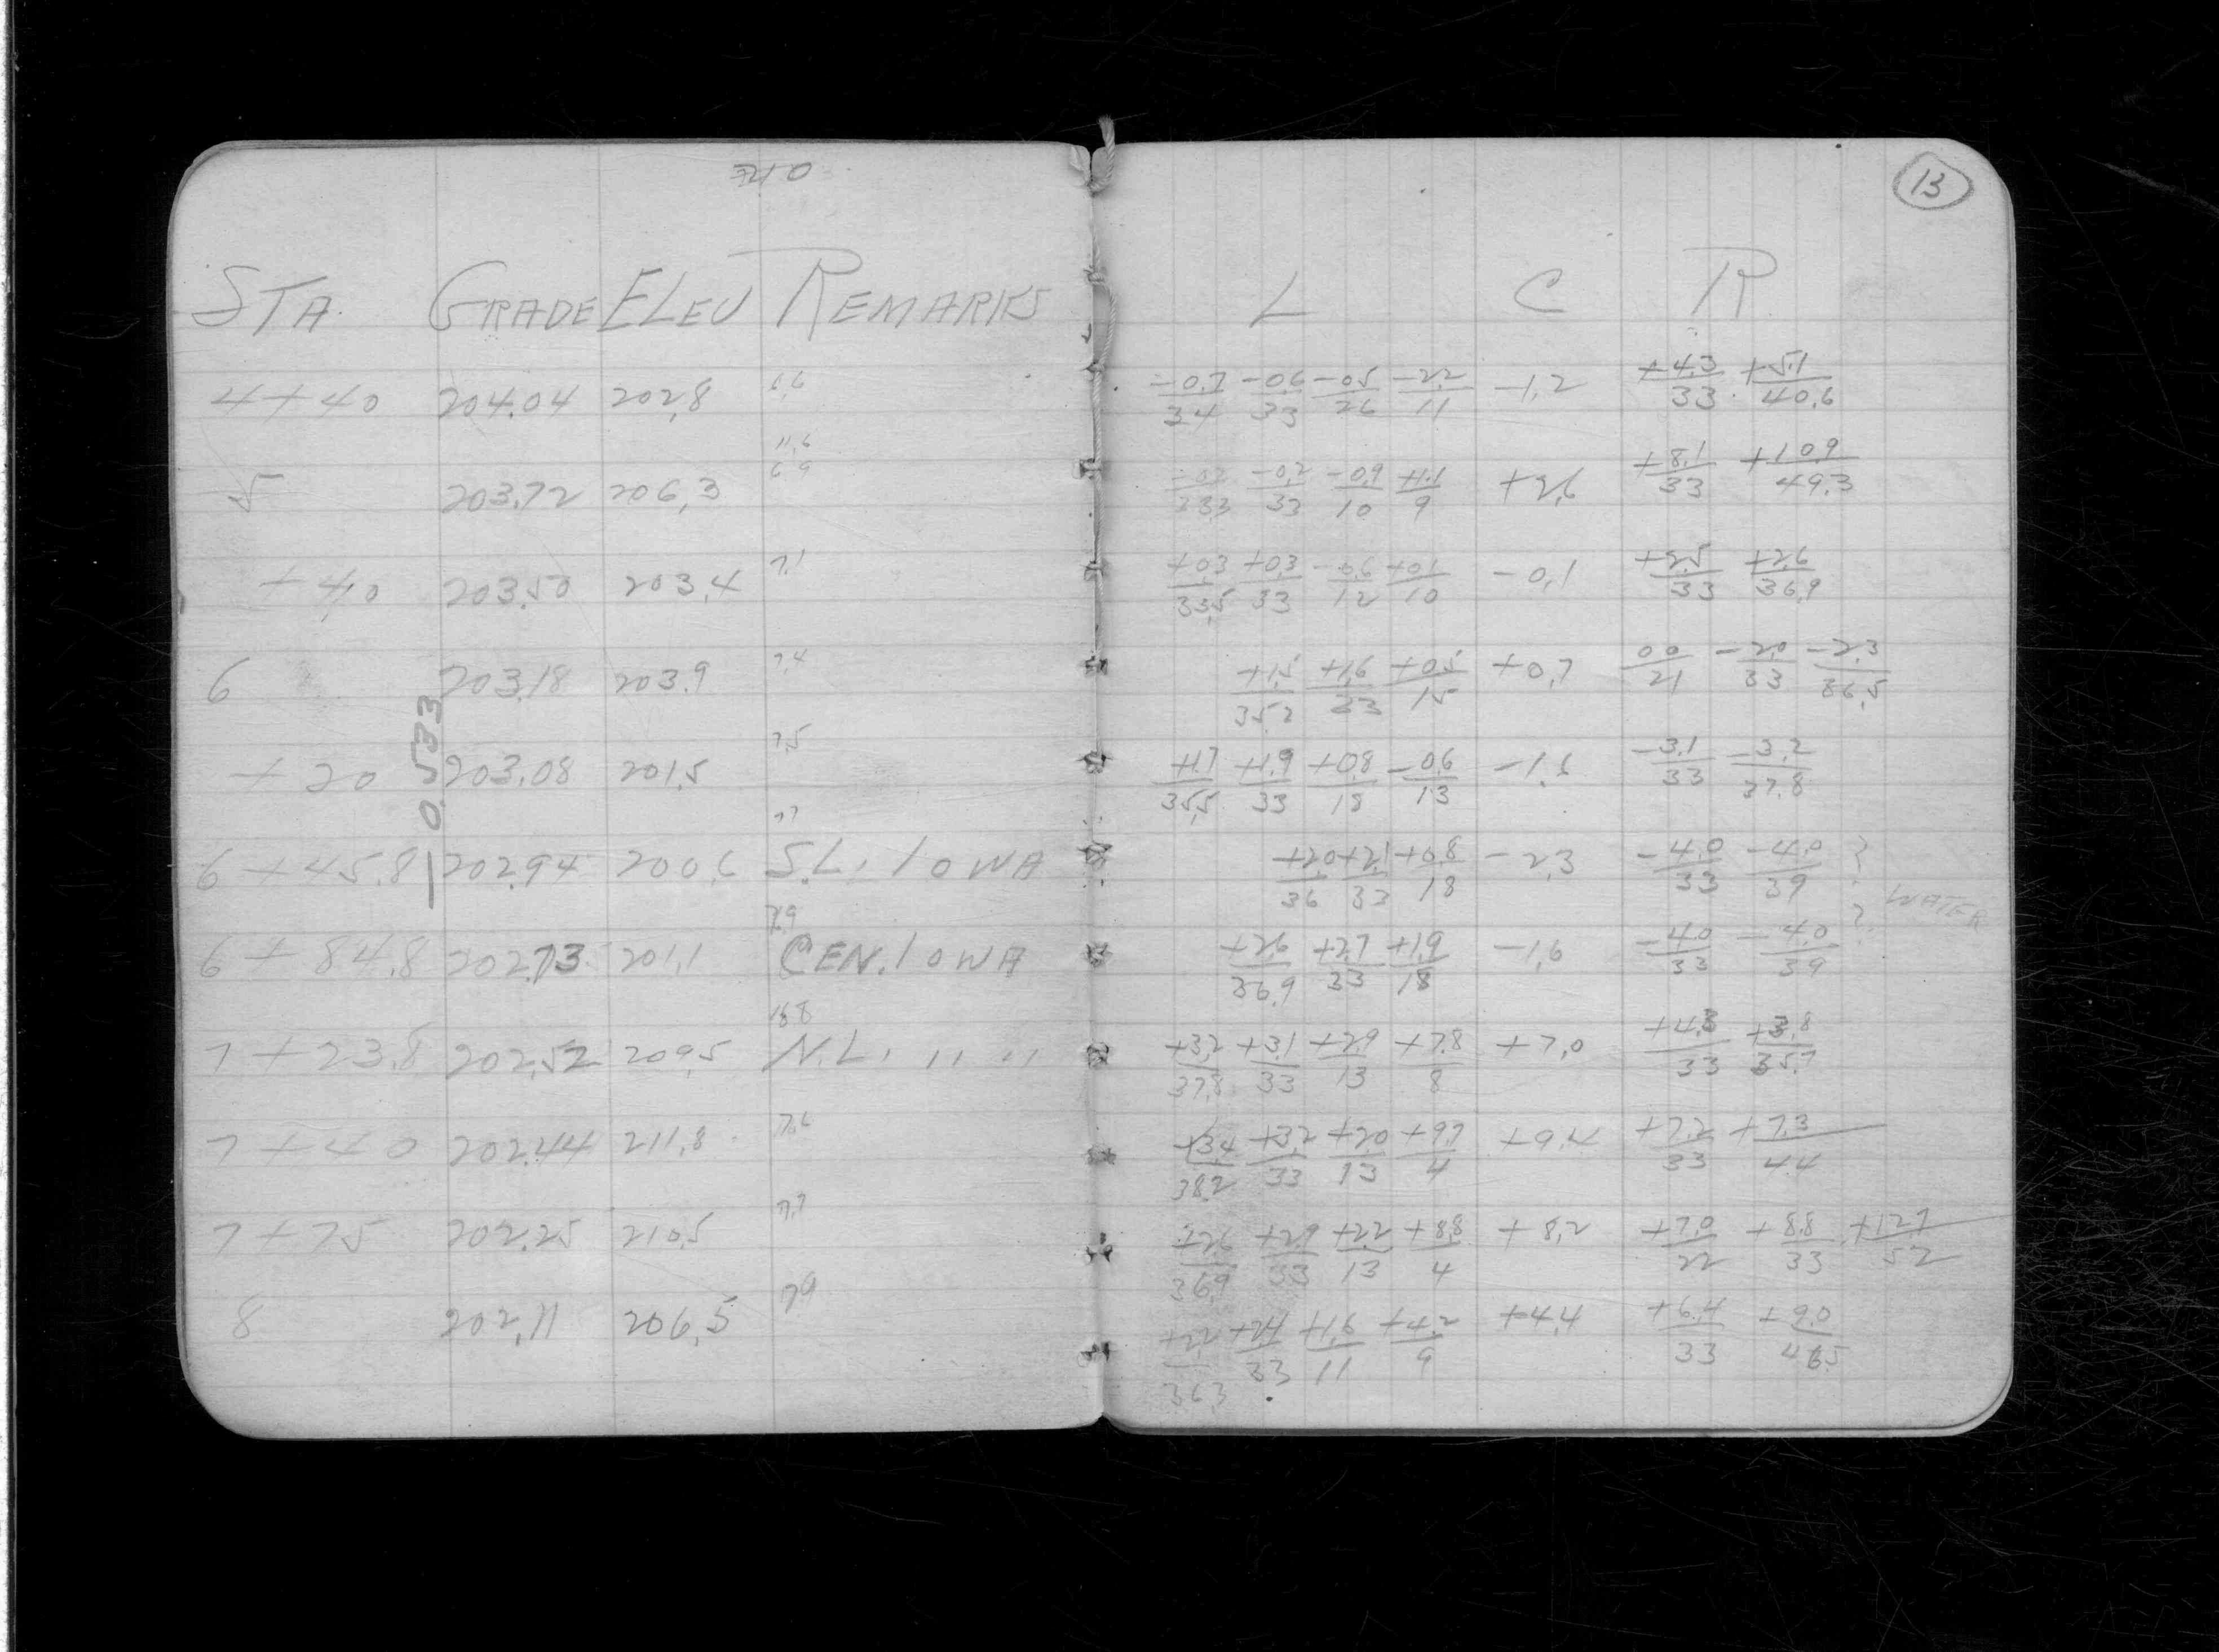 210
13
STA. GRADE ELEV REMARKS L C R
6.6
4+40 204.04 202.8 -0.7/34 -0.6/33 -0.5/26 -2.2/11 -1.2 +4.3/33 +5.1/40.6
11.6
6.9
5 203.72 206.3 -0.2/33.3 -0.2/33 -0.9/10 +1.1/9 +2.6 +8.1/33 +10.9/49.3
7.1
+40 203.50 203.4 +0.3/33.5 +0.3/33 -0.6/12 +0.1/10 -0.1 +2.5/33 +2.6/36.9
7.4
6 203.18 203.9 +1.5/35.2 +1.6/33 +0.5/15 +0.7 0.0/21 -2.0/33 -2.3/36.5
7.5
+20 203.08 201.5 +1.7/35.5 +1.9/33 +0.8/18 -0.6/13 -1.6 -3.1/33 -3.2/37.8
-0.533
7.7
6+45.8 202.94 200.6 S.L. IOWA +2.0/36 +2.1/33 +0.8/18 -2.3 -4.0/33 -4.0/39 ?
WATER
7.9
6+84.8 202.73 201.1 CEN. IOWA +2.6/36.9 +2.7/33 +1.9/18 -1.6 -4.0/33 -4.0/39 ?
7+23.8 202.52 209.5 N.L. " " +3.2/37.8 +3.1/33 +2.9/13 +7.8/8 +7.0 +4.3/33 +3.8/35.7
7.6
7+40 202.44 211.8 +3.4/38.2 +3.2/33 +2.0/13 +9.7/4 +9.4 +7.2/33 +7.3/44
7.7
7+75 202.25 210.5 +2.6/36.9 +2.9/33 +2.2/13 +8.8/4 +8.2 +7.0/22 +8.8/33 +12.7/52
7.9
8 202.11 206.5 +2.2/36.3 +2.4/33 +1.6/11 +4.2/9 +4.4 +6.4/33 +9.0/46.5